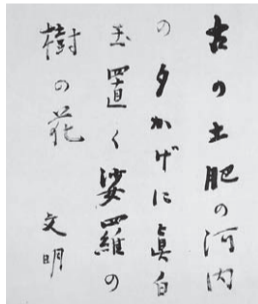 古の土肥の河内
の夕かげに眞白
玉置く娑羅の
樹の花
文明